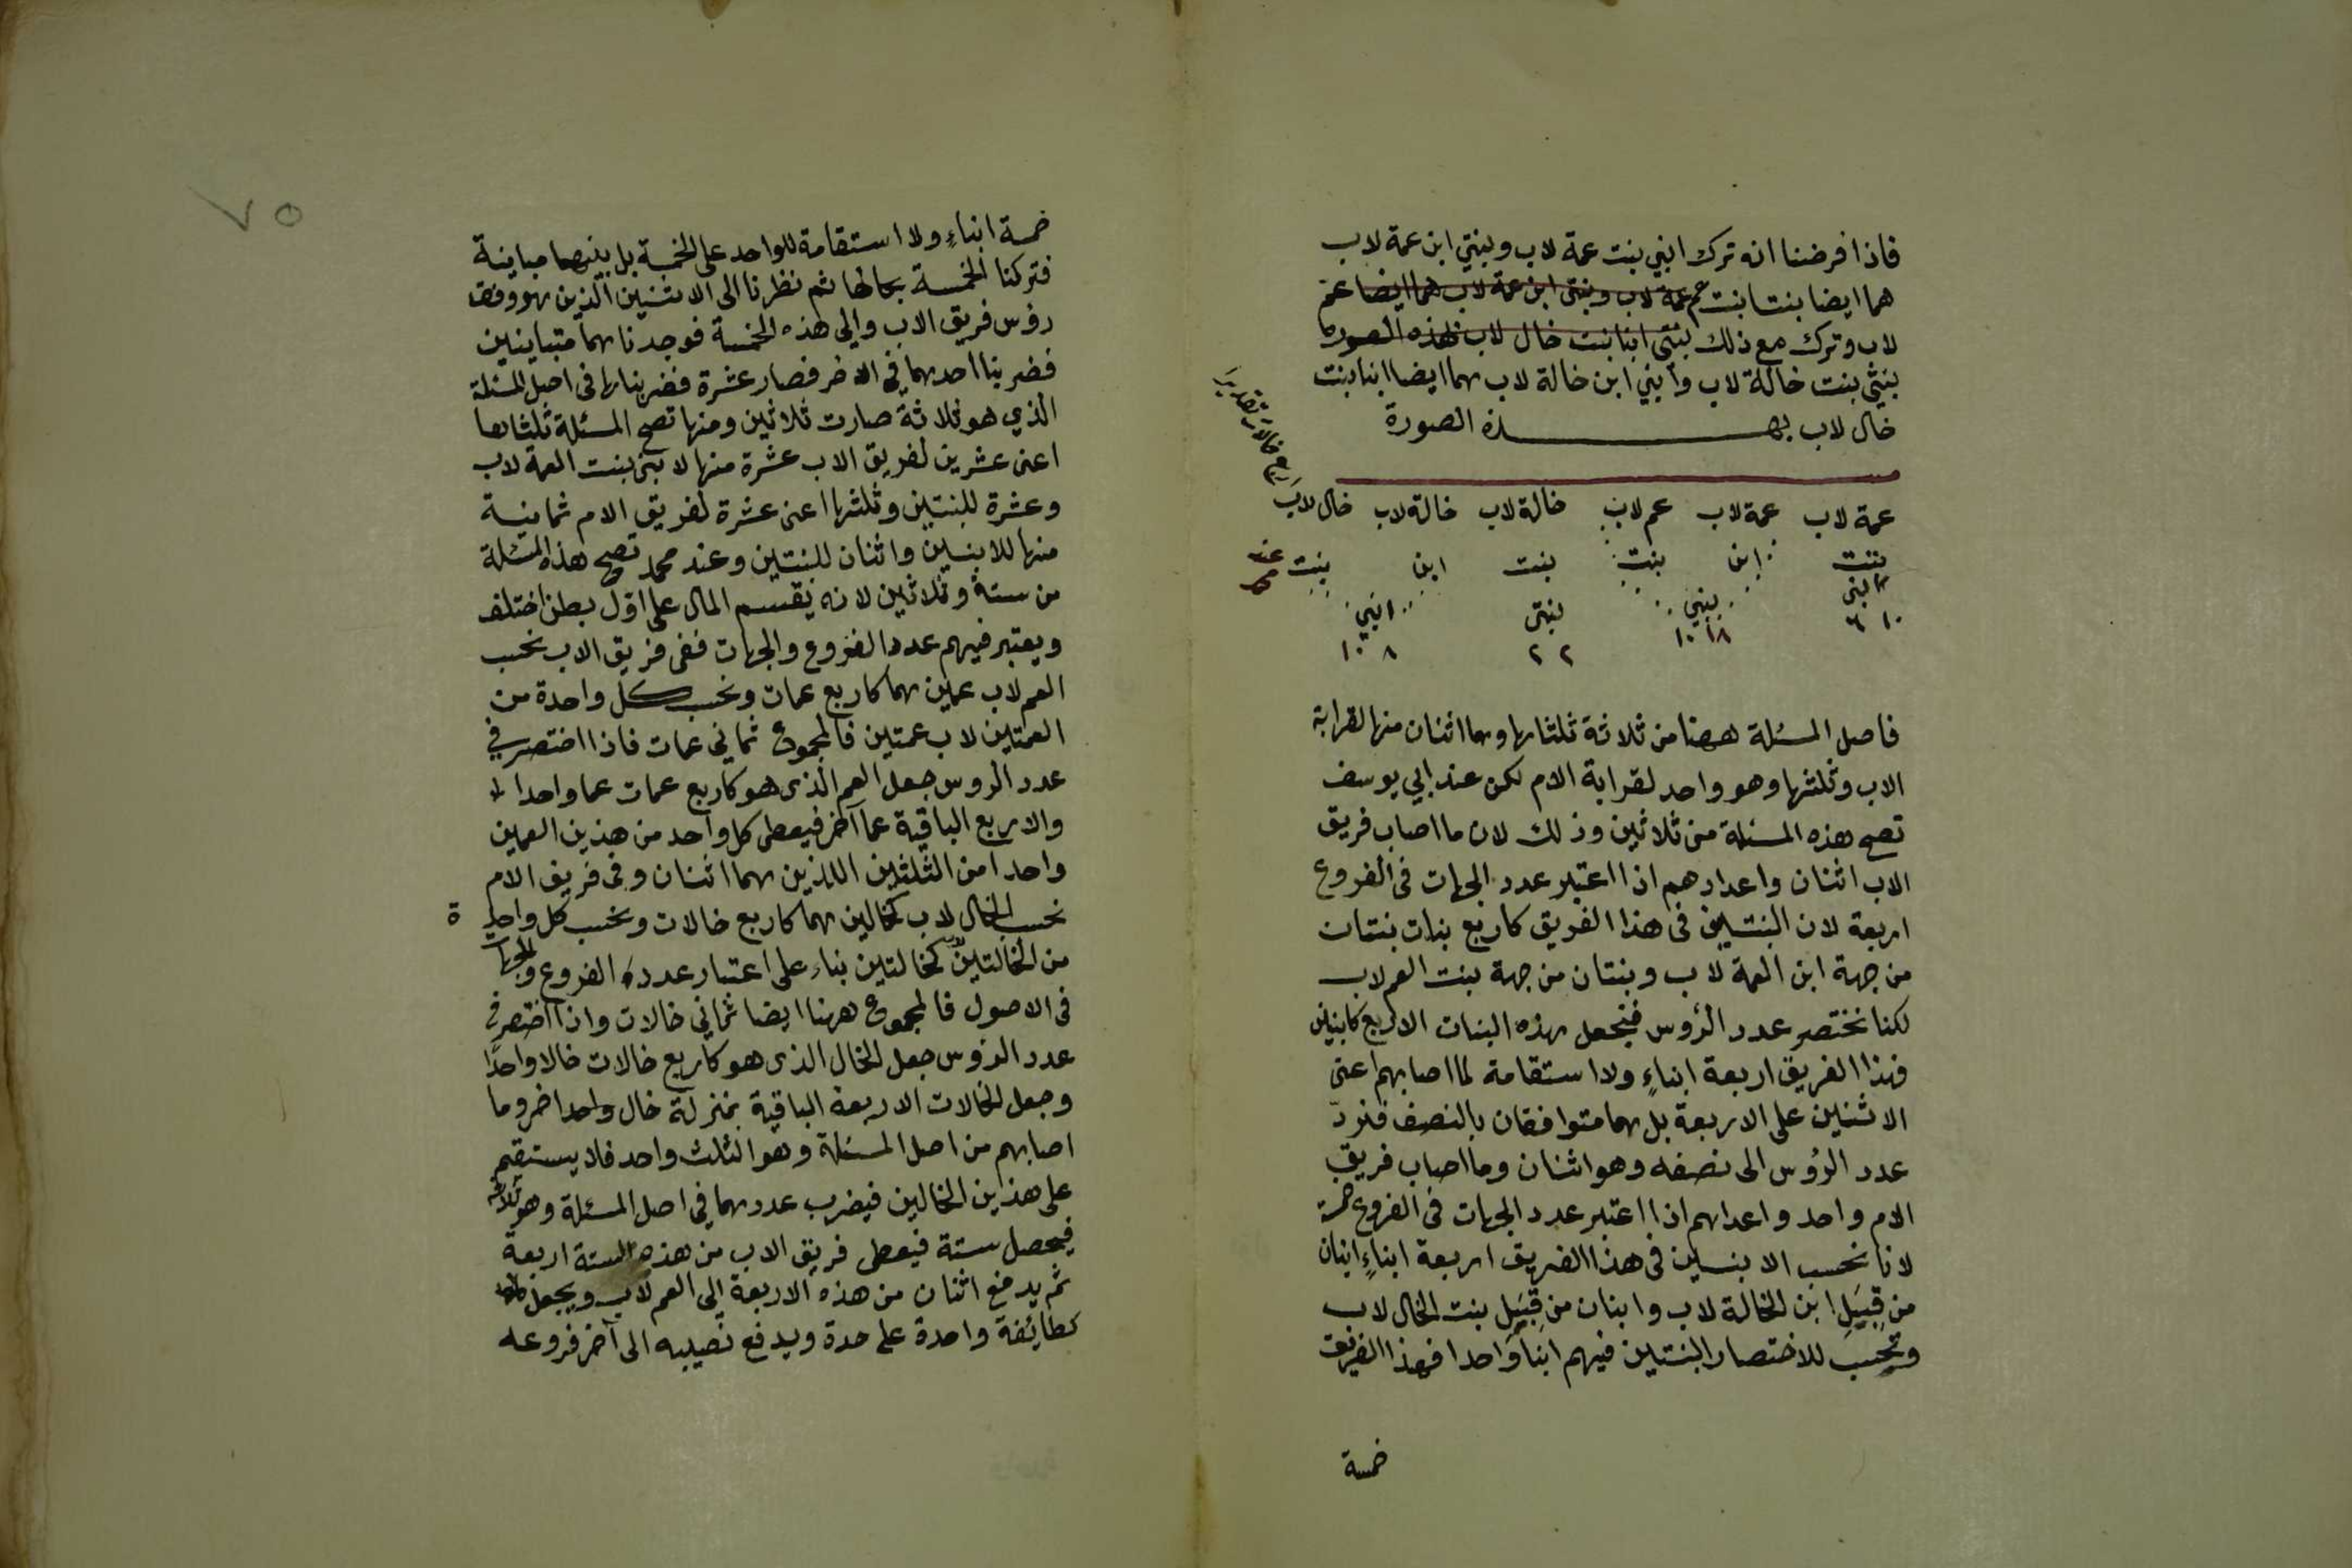 فاذا فرضنا انه ترك ابني بنت عمة لاب وبنتي ابن عمة لاب
هما ايضا بنتا بنت عم عمة لاب وبنتى ابن عمة لاب هما ايضا عم
لاب وترك مع ذلك بنتى ابنا بنت خال لاب بهذه الصورة
بنتي بنت خالة لاب وابني ابن خالة لاب هما ايضا ابنا بنت
خال لاب بهذه الصورة
عمة لاب عمة لاب عم لاب خالة لاب خالة لاب خال لاب
بنت ابن بنت بنت ابن بنت عند
ابنى بنتي بنتى ابني
١٠ ٦ ١٨ ١٠ ٢ ٢ ٨ ١٠
فاصل المسئلة ههنا من ثلاثة ثلثاها وهما اثنان منها لقرابة
الاب وثلثها وهو واحد لقرابة الام لكن عند ابي يوسف
تصح هذه المسئلة من ثلاثين وذلك لان ما اصاب فريق
الاب اثنان واعدادهم اذا اعتبر عدد الجهات فى الفروع
اربعة لان البنتين فى هذا الفريق كاربع بنات بنتان
من جهة ابن العمة لاب وبنتان من جهة بنت العم لاب
لكنا نختصر عدد الرؤس فنجعل هذه البنات الاربع كابنين
فهذا الفريق اربعة ابناءٍ ولا استقامة لما اصابهم اعنى
الاثنين على الاربعة بل هما متوافقان بالنصف فنردّ
عدد الرؤس الى نصفه وهو اثنان وما اصاب فريق
الام واحد واعدادهم اذا اعتبر عدد الجهات فى الفروع خمسة
لانا نحسب الابنين فى هذا الفريق اربعة ابناءٍ ابنان
من قِبَلِ ابن الخالة لاب وابنان من قِبَلِ بنت الخال لاب
ونحسب للاختصار البنتين فيهم ابنا واحدا فهذا الفريق
خمسة
٧٥
خمسة ابناءٍ ولا استقامة للواحد على الخمسة بل بينهما مباينة
فتركنا الخمسة بحالها ثم نظرنا الى الاثنين الذين هو وفق
رؤس فريق الاب والى هذه الخمسة فوجدناهما متباينين
فضربنا احدهما فى الاخر فصار عشرة فضربناها فى اصل المسئلة
الذي هو ثلاثة صارت ثلاثين ومنها تصح المسئلة ثلثاها
اعنى عشرين لفريق الاب عشرة منها لابنى بنت العمة لاب
وعشرة للبنتين وثلثها اعنى عشرة لفريق الام ثمانية
منها للابنين واثنان للبنتين وعند محمد تصح هذه المسئلة
من ستة وثلاثين لانه يقسم المال على اوّل بطن اختلف
ويعتبر فيهم عدد الفروع والجهات ففى فريق الاب نحسب
العم لاب عمين هما كاربع عمات ونحسب كل واحدة من
العمتين لاب عمتين فالمجموع ثماني عمات فاذا اختصر في
عدد الرؤس جعل العم الذى هو كاربع عمات عما واحدا
والاربع الباقية عما آخر فيعطى كل واحد من هذين العمين
واحدا من الثلثين اللذين هما اثنان وفى فريق الام
نحسب الخال لاب كخالين هما كاربع خالات ونحسب كل واحدة
من الخالتين كخالتين بناء على اعتبار عدد الفروع والجهات
فى الاصول فالمجموع ههنا ايضا ثماني خالات واذا اختصر في
عدد الرؤس جعل الخال الذى هو كاربع خالات خالا واحدًا
وجعل الخالات الاربعة الباقية بمنزلة خال واحد اخر وما
اصابهم من اصل المسئلة وهو الثلث واحد فلا يستقيم
على هذين الخالين فيضرب عددهما في اصل المسئلة وهو ثلاثة
فيحصل ستة فيعطى فريق الاب من هذه الستة اربعة
ثم يدفع اثنان من هذه الاربعة الى العم لاب ويجعل
كطائفة واحدة على حدة ويدفع نصيبه الى آخر فروعه